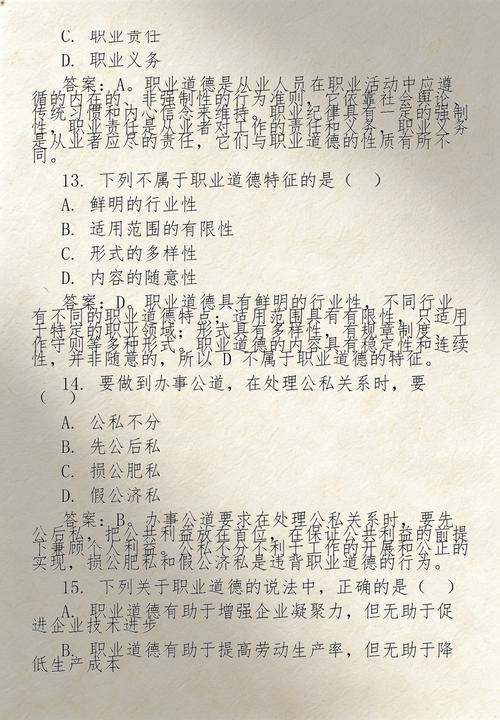 C. 职业责任
D. 职业义务
答案：A。职业道德是从业人员在职业活动中应遵
循的内在的、非强制性的行为准则，它依靠社会舆论、
传统习惯和内心信念来维持。职业纪律具有一定的强制
性，职业责任是从业者对工作的责任和义务，职业义务
是从业者应尽的责任，它们与职业道德的性质有所不
同。
13. 下列不属于职业道德特征的是（ ）
A. 鲜明的行业性
B. 适用范围的有限性
C. 形式的多样性
D. 内容的随意性
答案：D。职业道德具有鲜明的行业性，不同行业
有不同的职业道德特点；适用范围具有有限性，只适用
于特定的职业领域；形式具有多样性，有规章制度、工
作守则等多种形式。职业道德的内容具有稳定性和连续
性，并非随意的，所以 D 不属于职业道德的特征。
14. 要做到办事公道，在处理公私关系时，要
（ ）
A. 公私不分
B. 先公后私
C. 损公肥私
D. 假公济私
答案：B。办事公道要求在处理公私关系时，要先
公后私，把公共利益放在首位，在保证公共利益的前提
下兼顾个人利益。公私不分不利于工作的开展和公正的
实现，损公肥私和假公济私是违背职业道德的行为。
15. 下列关于职业道德的说法中，正确的是（ ）
A. 职业道德有助于增强企业凝聚力，但无助于促
进企业技术进步
B. 职业道德有助于提高劳动生产率，但无助于降
低生产成本